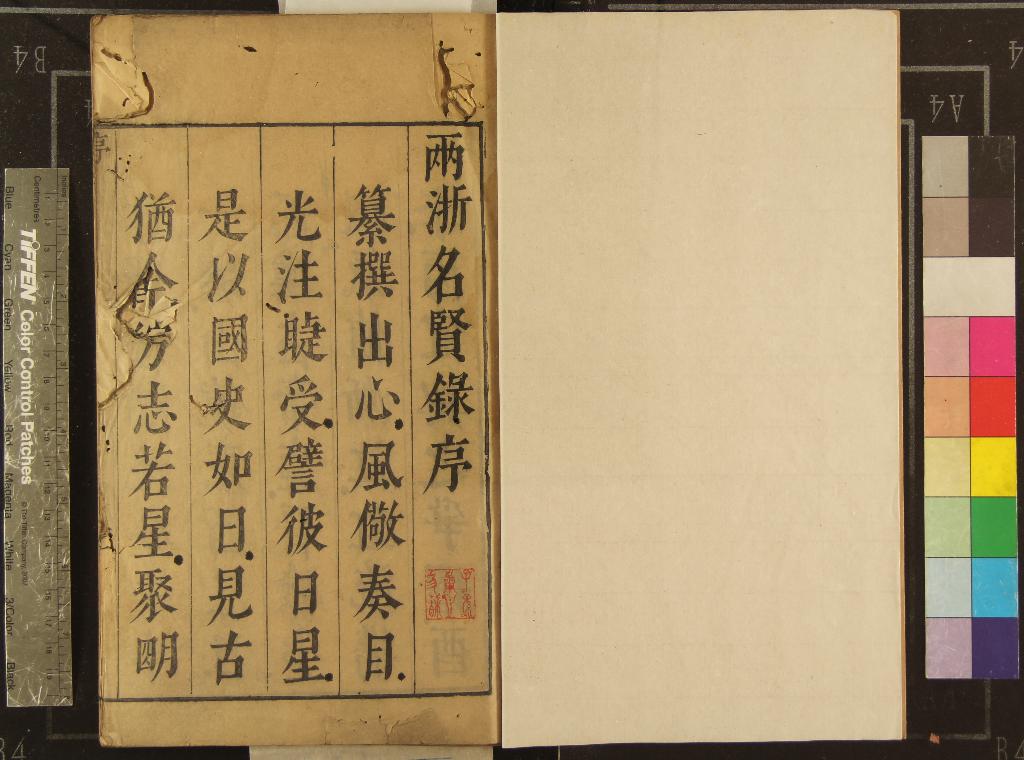 兩浙名賢錄序
纂撰出心風儆奏目
光注睫受譬彼日星
是以國史如日見古
猶今方志若星聚明
序
TIFFEN Color Control Patches
Centimetres
Inches
Blue
Cyan
Green
Yellow
Red
Magenta
White
3/Color
Black
B4
A4